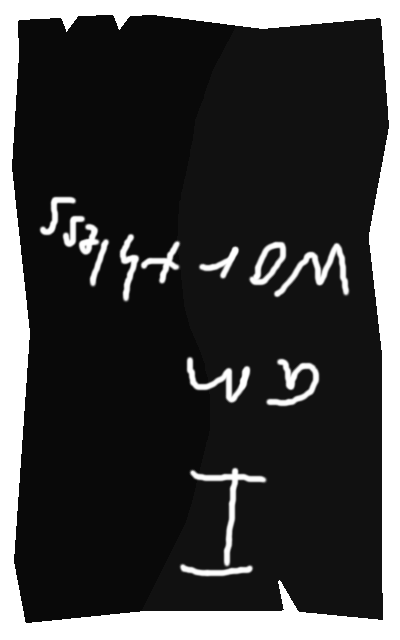 I
am
worthless